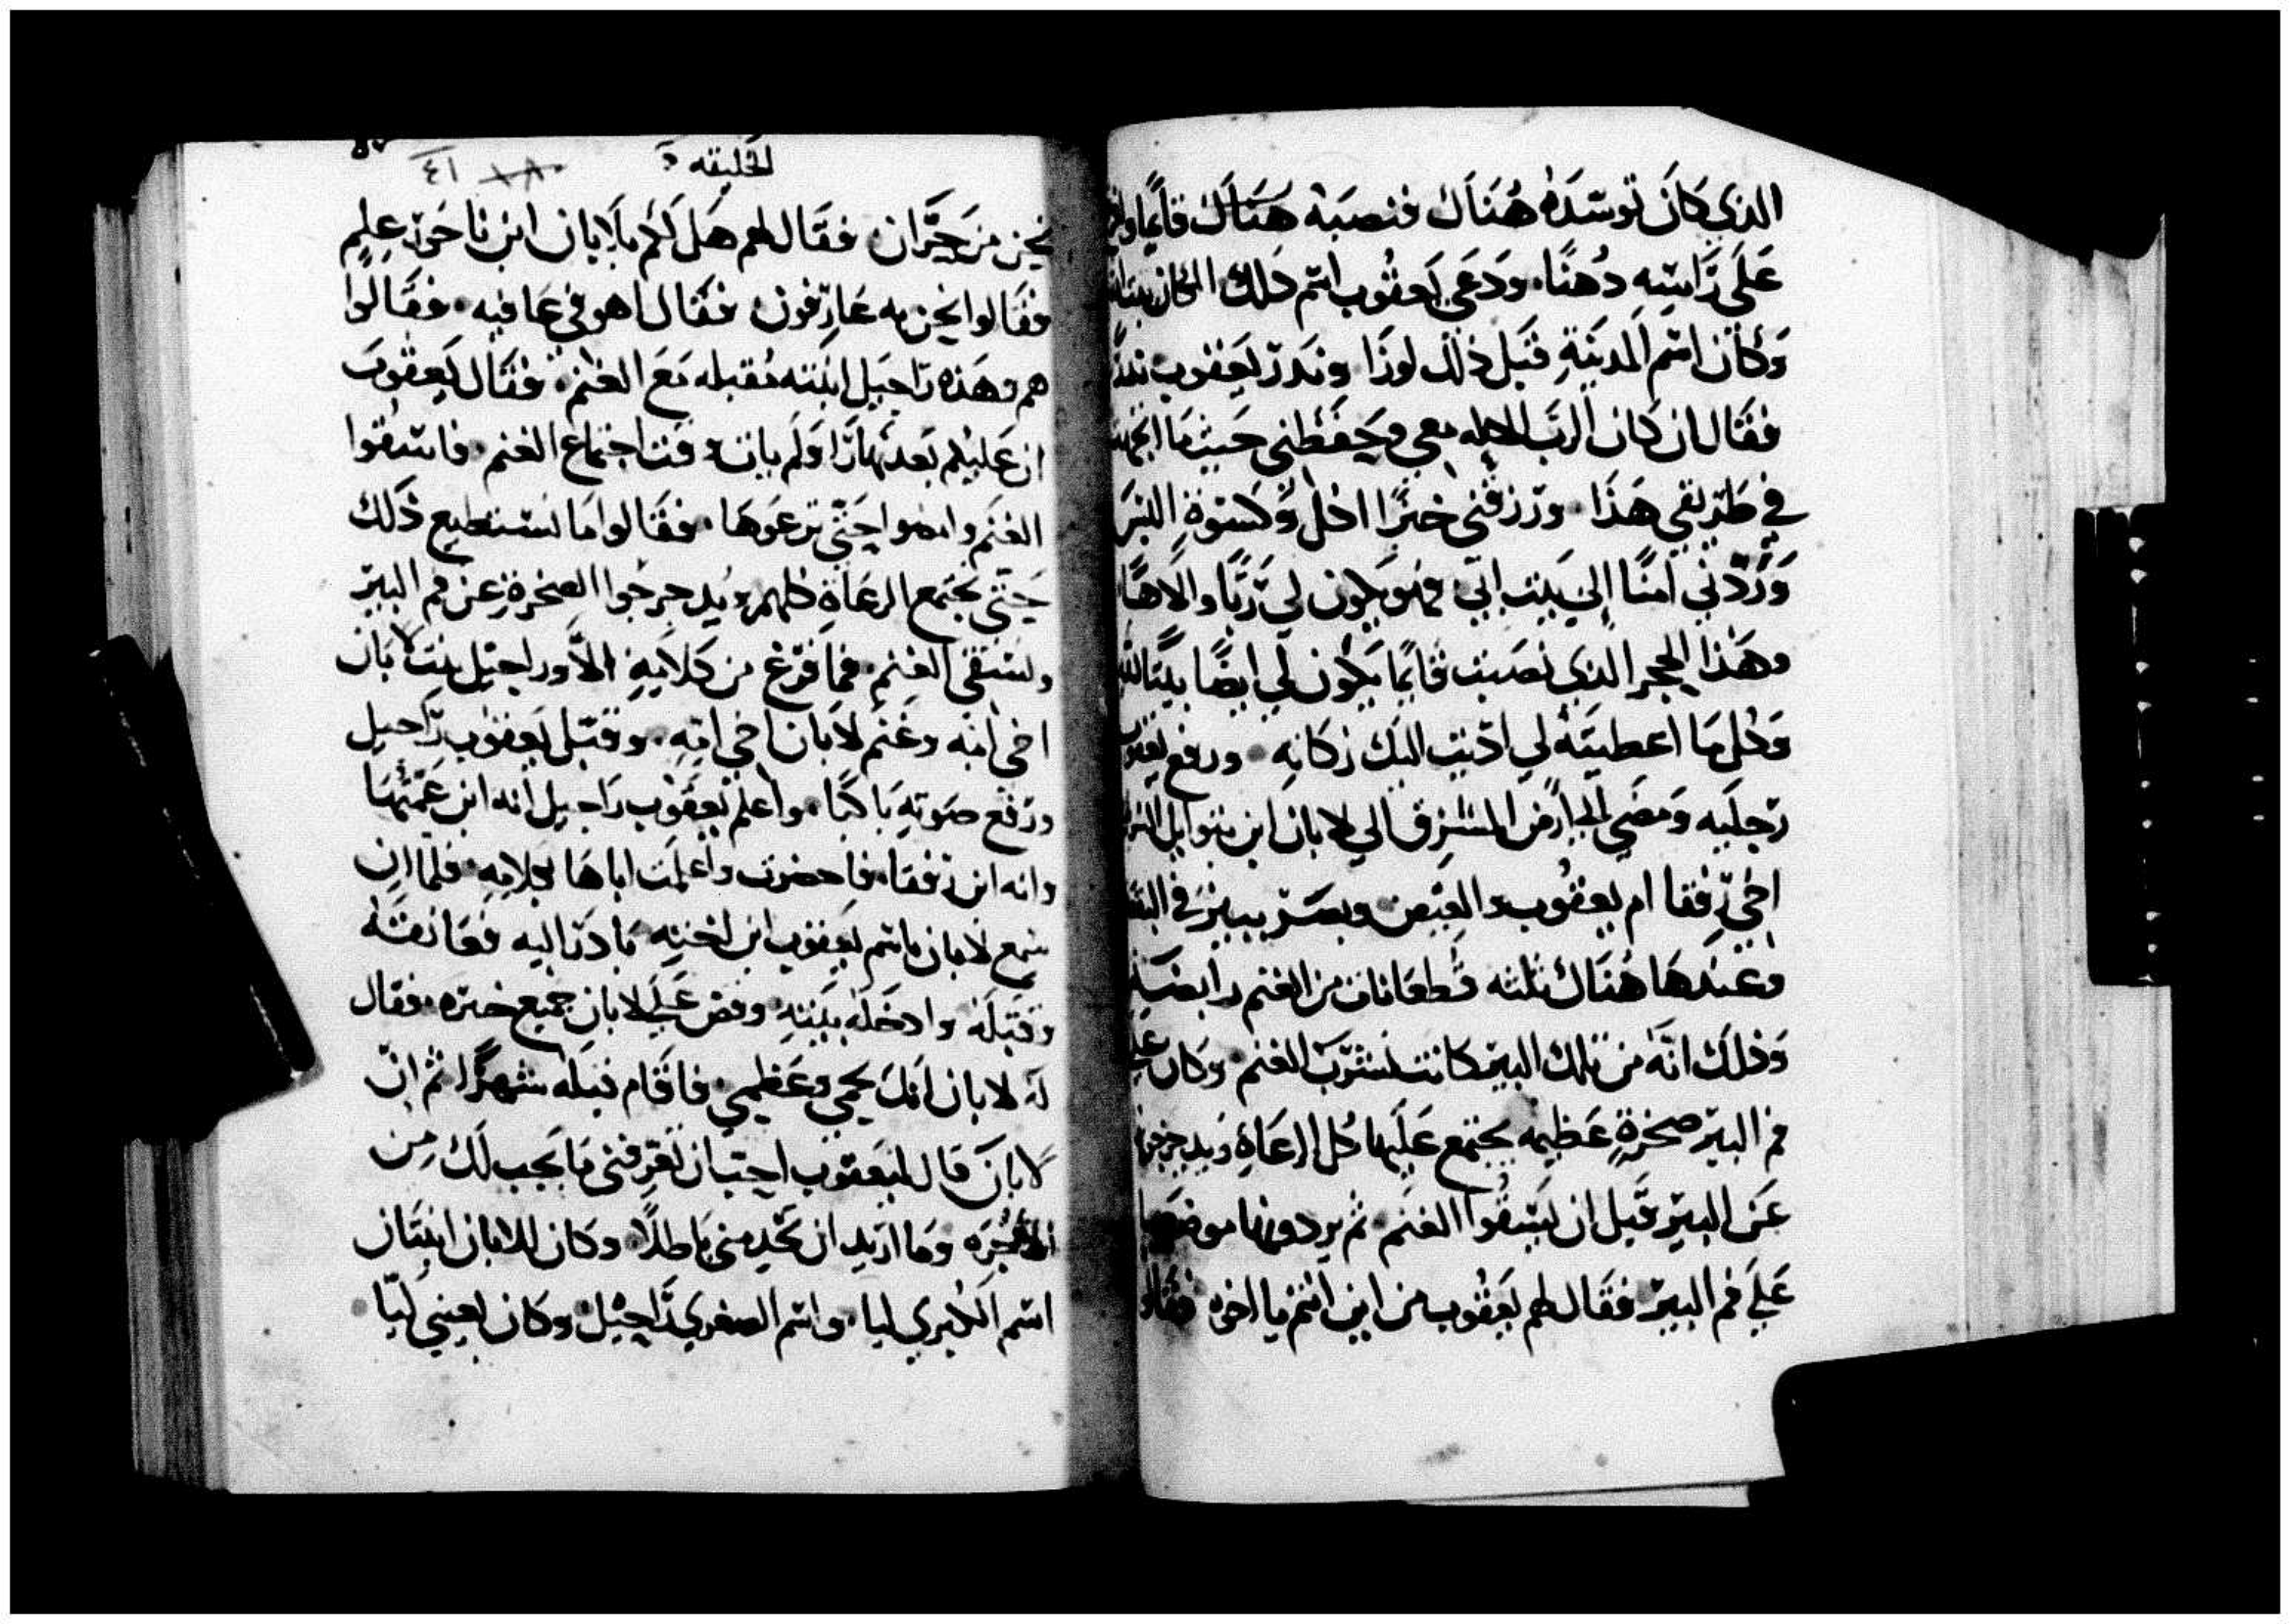 الذي كَانَ توسّدَهُ هُنَاك فنصبَهُ هَنَاك قايمًا
عَلَى رَّاسِه دُهنًا. ودَعَى يَعقُوب اسّم ذلك المكان
وَكَان اسّم المدينَةِ قبَل ذلك لوزَا ونَدرّ يَعقوب ندرًا
فقَال ان كَان الربّ الاله معي وحَفظني حَيث مَا
في طَرّيقي هَذَا. ورّزقني خبزًا اكل وكسوَة
وَرّدّني امنًا إلى بَيت ابَي فهو يكون لي رَّبًا والَاهًا
وهَذا الحجر الذي نصَبت قايمًا يَكون لي ايضًا بيتًا لله
وَكل مَا اعطيتَهُ لي ادّيت اليَك زكاته. ورفع يعقوب
رّجليَه ومَضى الى ارض المشرق الي لابان ابن بتوايل
اخي رّفقا ام يعقوب والعِيَص وبصَرّ ببير في
وعندهَا هُنَاك ثلثه قطعَانات من الغنم رابضَه
وَذلك انَّهَ من تلك البيرّ كانت تشرّب الغنم. وكان علي
فم البيرّ صخرَةٍ عَظيمه يجتمع عَليَها كل الرعَاةِ ويدحرجوها
عَن البيرّ قبَل ان يَسقُوا الغنَم. ثم يردونها موضعها
عَلَي فم البيرّ. فقَال لهم يَعقوب من اين انتم يا اخوه فقالوا
الخليقه
٤١
نحن من حَرَّان. فقَال لهم هَل لَكُم بلابان ابن ناحَورّ عِلم
فقَالوا نحن به عَارّفون. فقَال اهو في عَافيه. فقَالوا
هم وهَذه رّاحَيل ابنته مُقبله مَعَ الغنم. فقَال يَعقوب
ان عَليكم بَعد نهَارًا ولَم يات وقت اجتماع الغنم. فاسّقوا
الغنَم وامضوا حَتّى ترعَوهَا. فقَالوا مَا نسّتطيع ذَلك
حَتّى تجتمع الرعَاةِ كلهم ويُدحرجوا الصَخرةِ عن فم البيرّ
ونسّقي الغنم. فمَا فرّغ من كَلامِهِ الَّا وراحيل بنت لابان
اخي امه وغَنم لابَان اخي امِّهِ. وقبّل يَعقوب رّاحيل
ورّفع صَوته بَاكيًا. واعلم يَعقوب رَاحيل انه ابن عَمّتهَا
وانه ابن رّفقَا. فاحضرت واعلمَت اباهَا بكلامِهِ. فلمّا ان
سّمع لابان باسّم يَعقوب ابن اخته بَادرّ اليه فعَانقَهُ
وقبَلَه وادخَله بيَتهِ وقص عَلَي لابان جميع خبرّه. فقال
لَه لابان انك لحمي وعَظمي. فاقَام قبله شهرًا. ثم انّ
لابانَ قال ليَعقوب احِبّ ان تعَرّفني مَا يَجب لَك مِن
الاجُرَه ومَا ارّيد ان تخدمني بَاطلًا. وكان للابان ابنتان
اسّم الكبري ليا. واسّم الصغري رّاحيل. وكان لعيني ليّا